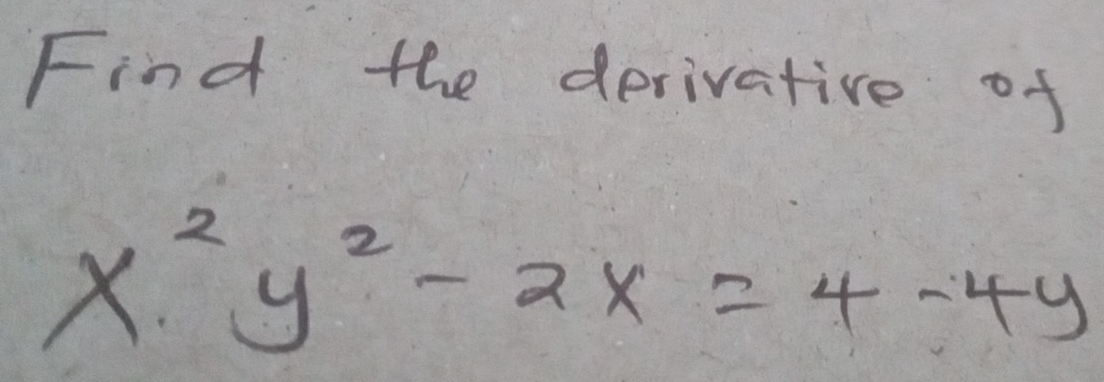 Find the derivative of
x² y² - 2x = 4 - 4y